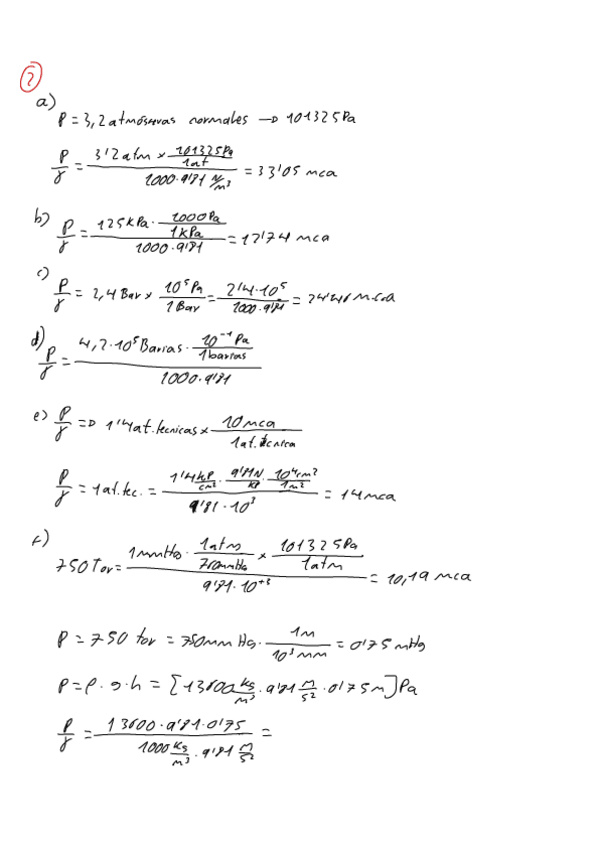 2
a)
P = 3,2 atmósferas normales → 101325 Pa
P/γ = (3'2 atm × (101325 Pa / 1 at)) / (1000·9'81 N/m³) = 33'05 mca
b) P/γ = (125 kPa · (1000 Pa / 1 kPa)) / (1000·9'81) = 12'74 mca
c) P/γ = 2,4 Bar × (10⁵ Pa / 1 Bar) = (2'4·10⁵) / (1000·9'81) = 24'46 mca
d) P/γ = (4,2·10⁵ Barias · (10⁻¹ Pa / 1 barias)) / (1000·9'81)
e) P/γ => 1'4 at.tecnicas × (10 mca / 1 at. técnica)
P/γ = 1 at.tec. = (1'4 kP/cm² · 9'81 N/kP · 10⁴cm²/1m²) / (9'81·10³) = 14 mca
f)
750 Tor = (1 mmHg · (1 atm / 760 mmHg) × (101325 Pa / 1 atm)) / (9'81·10⁺³) = 10,19 mca
P = 750 tor = 750 mm Hg · (1 m / 10³ mm) = 0'75 mHg
P = ρ·g·h = [13600 kg/m³ · 9'81 m/s² · 0'75 m] Pa
P/γ = (13600·9'81·0'75) / (1000 kg/m³ · 9'81 m/s²) =